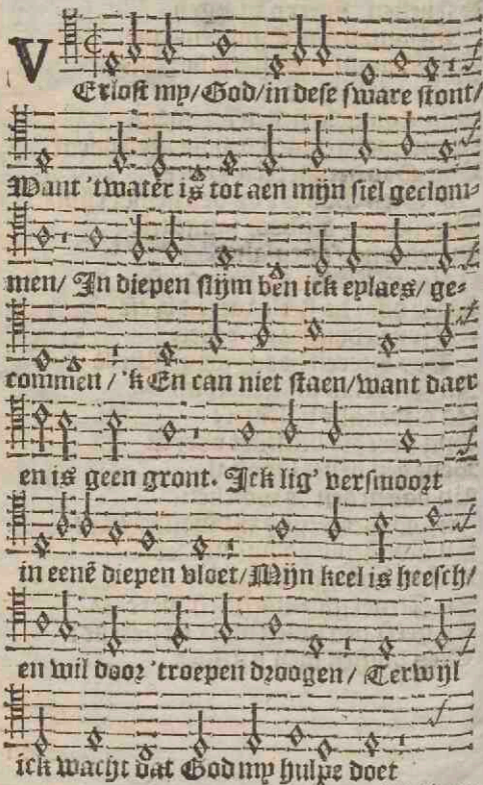 VErlost my/God/in dese sware stont/
Want 'twater is tot aen mijn siel geclom-
men/ In diepen slijm ben ick eylaes/ ge-
commen / 'k En can niet staen/want daer
en is geen gront. Ick lig' versmoort
in eenē diepen vloet/Mijn keel is heesch/
en wil door 'troepen droogen/ Terwijl
ick wacht dat God my hulpe doet